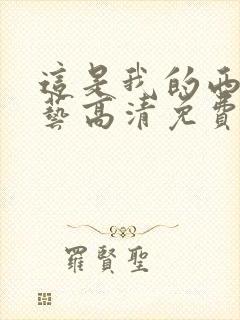 這是我的西
藝高清免費
羅賢聖